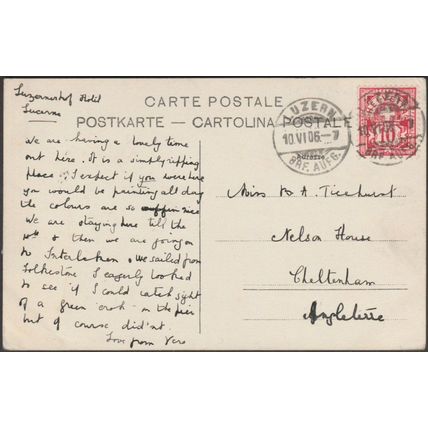 CARTE POSTALE
POSTKARTE — CARTOLINA POSTALE
LUZERN
10.VI.06.–7
BRF. AUFG.
HELVETIA
10
BRF. AUFG.
Luzernerhof Hotel
Lucerne
We are having a lovely time
out here. It is a simply ripping
place & I expect if you were here
you would be painting all day
the colours are so nice
We are staying here till the
& then we are going on
to Interlaken. We sailed from
Folkestone I eagerly looked
to see if I could catch sight
of a green on the pier
but of course didn't.
Love from Vera
Miss K A Ticehurst
Nelson House
Cheltenham
Angleterre